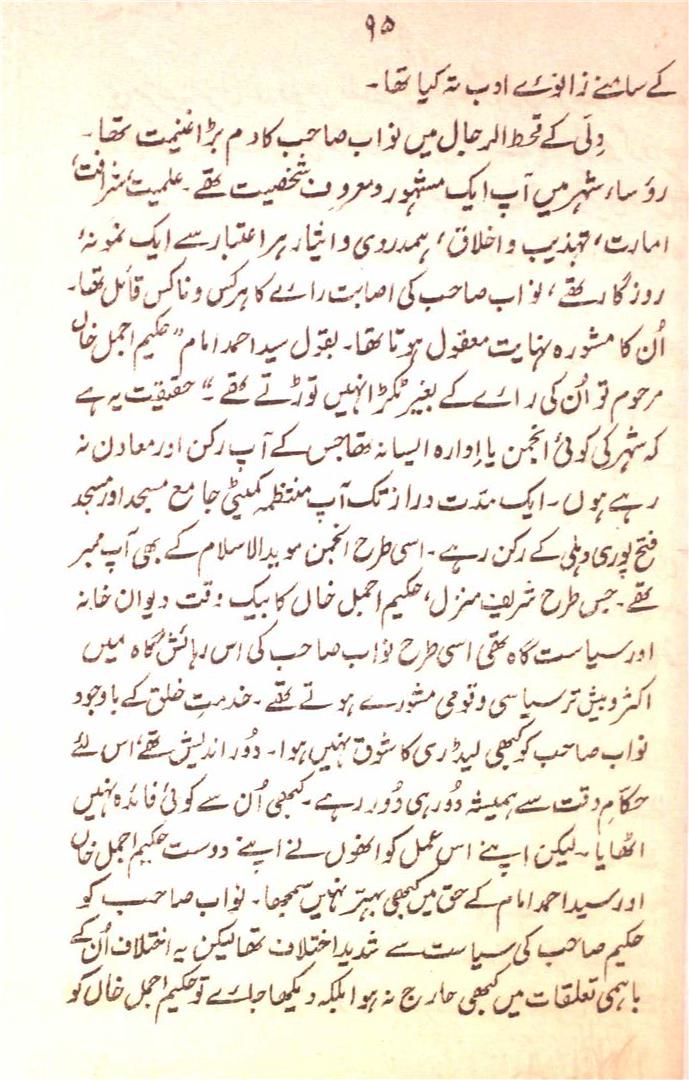 ۹۵
کے سامنے زانوئے ادب تہ کیا تھا۔
دِلّی کے قحط الرجال میں نواب صاحب کا دم بڑا غنیمت تھا۔
رؤساء شہر میں آپ ایک مشہور و معروف شخصیت تھے۔ علمیت، شرافت،
امارت، تہذیب و اخلاق، ہمدردی و ایثار ہر اعتبار سے ایک نمونۂ
روزگار تھے، نواب صاحب کی اصابت رائے کا ہر کس و ناکس قائل تھا۔
اُن کا مشورہ نہایت معقول ہوتا تھا۔ بقول سید احمد امام ”حکیم اجمل خاں
مرحوم تو اُن کی رائے کے بغیر ٹکڑا نہیں توڑتے تھے۔“ حقیقت یہ ہے
کہ شہر کی کوئی انجمن یا اِدارہ ایسا نہ تھا جس کے آپ رکن اور معادن نہ
رہے ہوں۔ ایک مدّت دراز تک آپ منتظمہ کمیٹی جامع مسجد اور مسجد
فتح پوری دہلی کے رکن رہے۔ اسی طرح انجمن موید الاسلام کے بھی آپ ممبر
تھے۔ جس طرح شریف منزل، حکیم اجمل خاں کا بیک وقت دیوان خانہ
اور سیاست گاہ تھی اسی طرح نواب صاحب کی اس رہائش گاہ میں
اکثر و بیش تر سیاسی و قومی مشورے ہوتے تھے۔ خدمتِ خلق کے باوجود
نواب صاحب کو کبھی لیڈری کا شوق نہیں ہوا۔ دُور اندیش تھے، اس لئے
حکّامِ وقت سے ہمیشہ دُور ہی دُور رہے۔ کبھی اُن سے کوئی فائدہ نہیں
اٹھایا۔ لیکن اپنے اس عمل کو انھوں نے اپنے دوست حکیم اجمل خاں
اور سید احمد امام کے حق میں کبھی بہتر نہیں سمجھا۔ نواب صاحب کو
حکیم صاحب کی سیاست سے شدید اختلاف تھا لیکن یہ اختلاف اُن کے
باہمی تعلقات میں کبھی حارج نہ ہوا بلکہ دیکھا جائے تو حکیم اجمل خاں کو